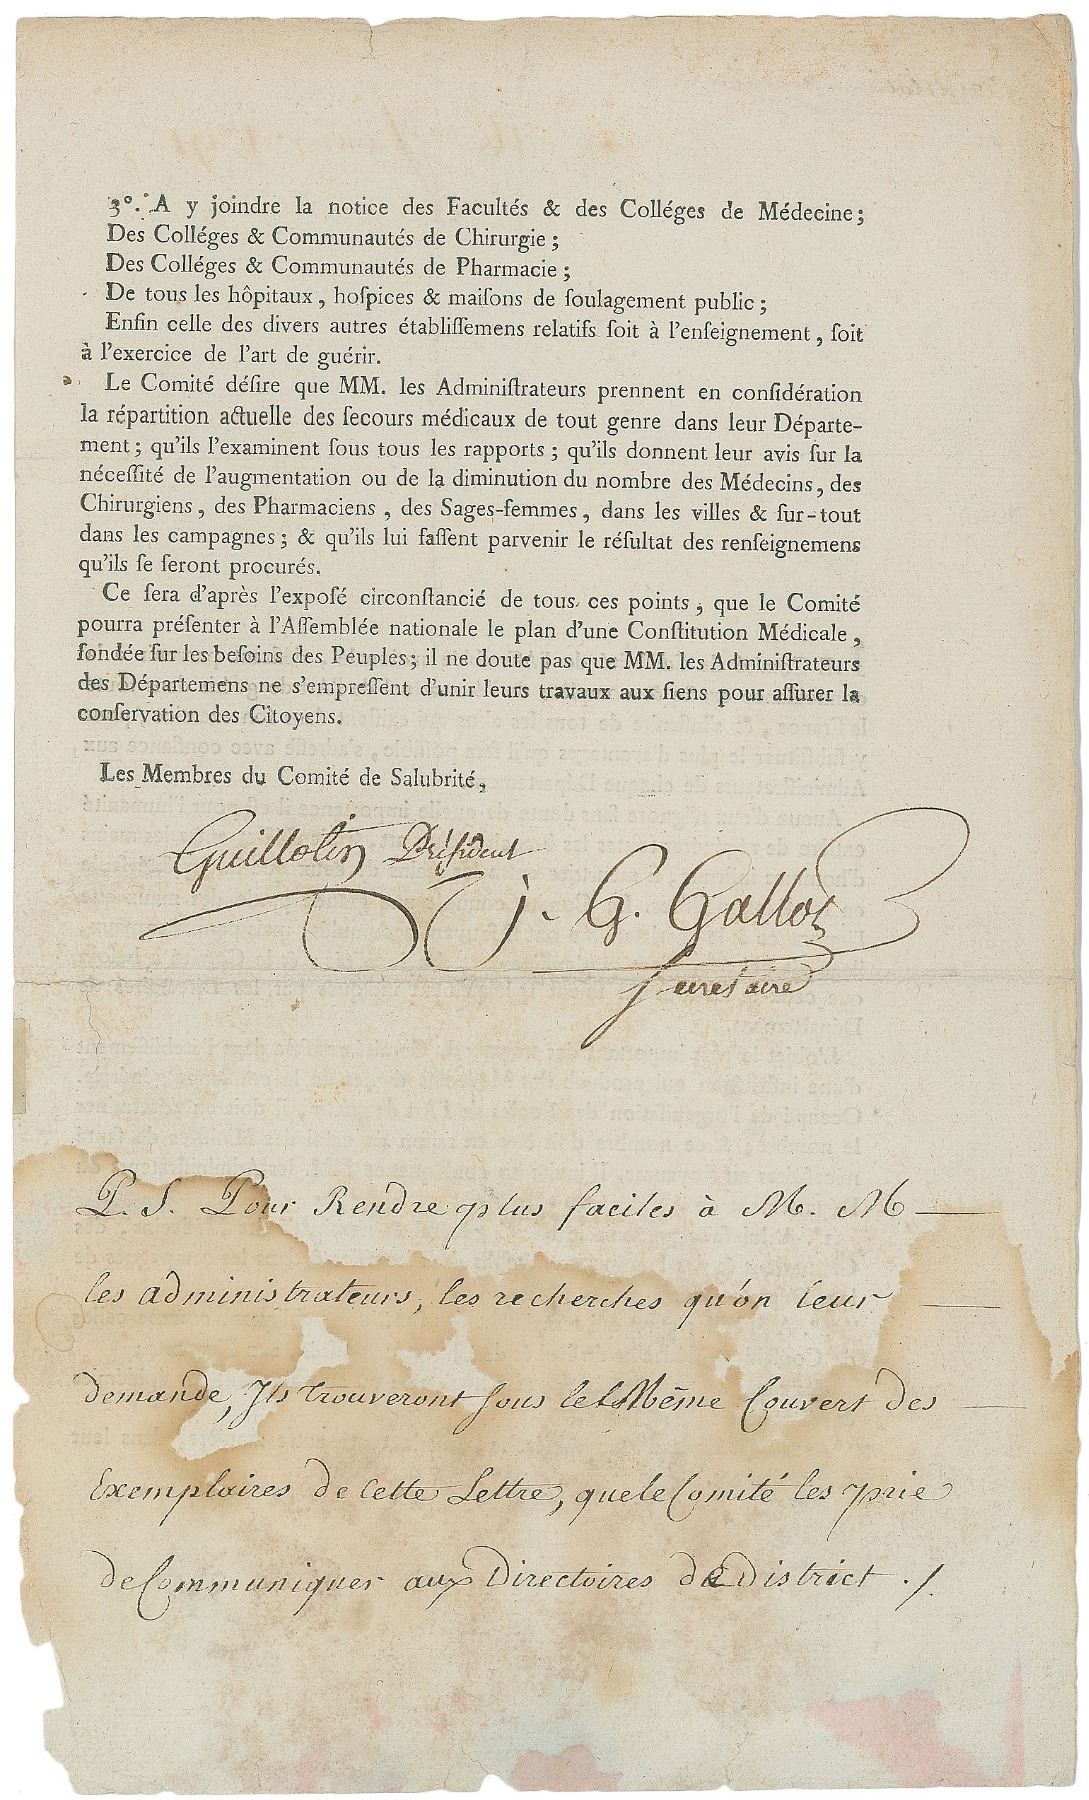 3°. A y joindre la notice des Facultés & des Colléges de Médecine;
Des Colléges & Communautés de Chirurgie;
Des Colléges & Communautés de Pharmacie;
De tous les hôpitaux, hoſpices & maiſons de ſoulagement public;
Enfin celle des divers autres établiſſemens relatifs ſoit à l'enſeignement, ſoit
à l'exercice de l'art de guérir.
Le Comité déſire que MM. les Adminiſtrateurs prennent en conſidération
la répartition actuelle des ſecours médicaux de tout genre dans leur Départe-
ment; qu'ils l'examinent ſous tous les rapports; qu'ils donnent leur avis ſur la
néceſſité de l'augmentation ou de la diminution du nombre des Médecins, des
Chirurgiens, des Pharmaciens, des Sages-femmes, dans les villes & ſur-tout
dans les campagnes; & qu'ils lui faſſent parvenir le réſultat des renſeignemens
qu'ils ſe ſeront procurés.
Ce ſera d'après l'expoſé circonſtancié de tous ces points, que le Comité
pourra préſenter à l'Aſſemblée nationale le plan d'une Conſtitution Médicale,
fondée ſur les beſoins des Peuples; il ne doute pas que MM. les Adminiſtrateurs
des Départemens ne s'empreſſent d'unir leurs travaux aux ſiens pour aſſurer la
conſervation des Citoyens.
Les Membres du Comité de Salubrité,
Guillotin Préſident
J. G. Gallot
ſecretaire
P. S. Pour Rendre plus faciles à M. M
les administrateurs, les recherches qu'on leur
demande, Ils trouveront ſous le Même Couvert des
Exemplaires de Cette Lettre, que le Comité les prie
de Communiquer aux Directoires de District ./.